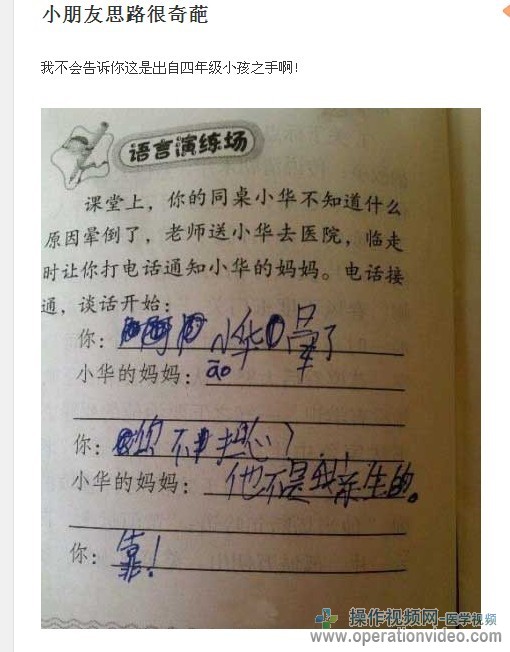 小朋友思路很奇葩
我不会告诉你这是出自四年级小孩之手啊!
语言演练场
课堂上，你的同桌小华不知道什么
原因晕倒了，老师送小华去医院，临走
时让你打电话通知小华的妈妈。电话接
通，谈话开始：
你：小华晕了
小华的妈妈：āo
你：你不担心？
小华的妈妈：他不是我亲生的。
你：靠！
操作视频网-医学视频
www.operationvideo.com